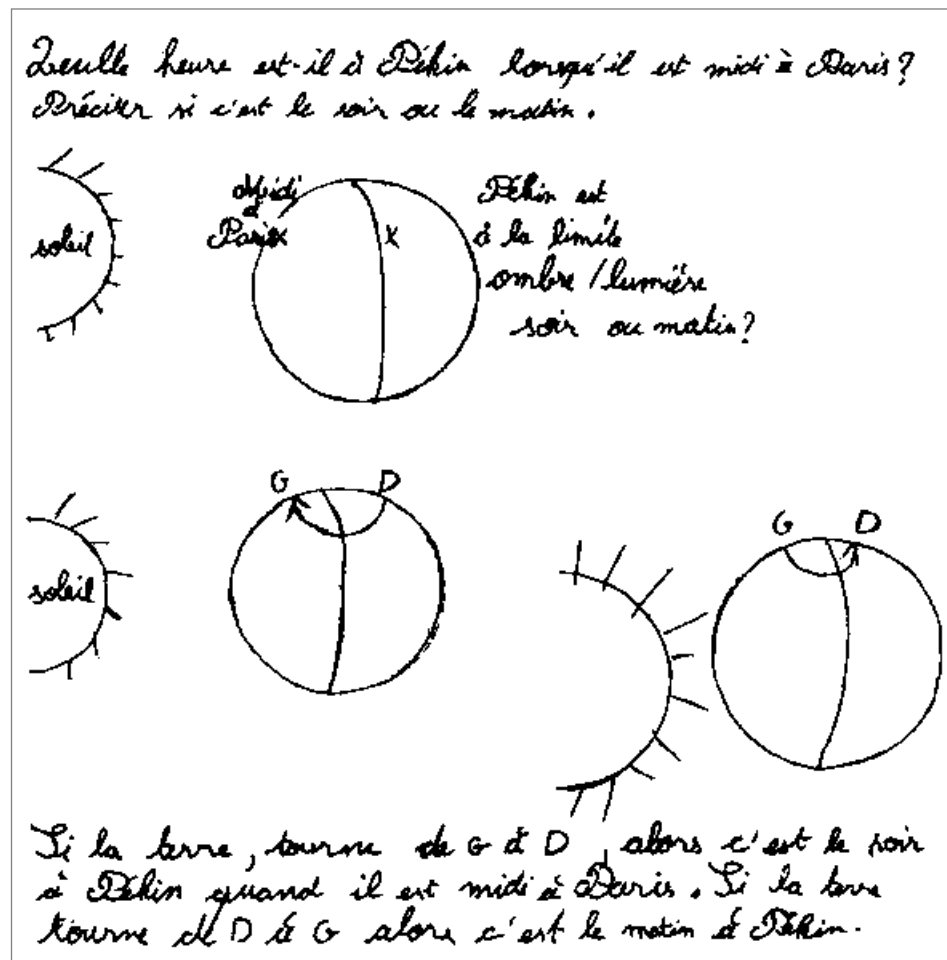 Qeulle heure est-il à Pékin lorsqu'il est midi à Paris?
Préciser si c'est le soir ou le matin.
soleil
Midi
à
Paris
X
X
Pékin est
à la limite
ombre / lumière
soir ou matin?
soleil
G
D
G
D
Si la terre, tourne de G à D, alors c'est le soir
à Pékin quand il est midi à Paris. Si la terre
tourne de D à G alors c'est le matin à Pékin.